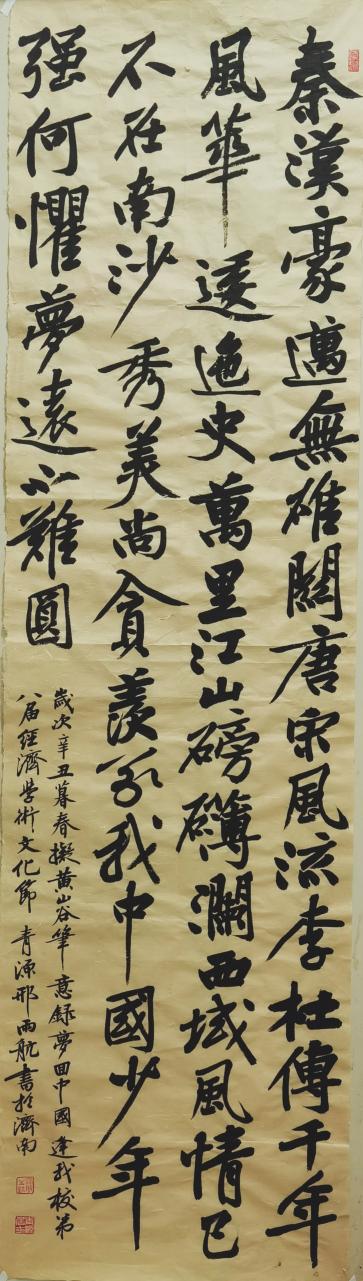 秦漢豪邁無雄關唐宋風流李杜傳千年
風華逶迤史萬里江山磅礴瀾西域風情已
不在南沙秀美尚貪羨我中國少年
强何懼夢遠不難圓
歲次辛丑暮春擬黃山谷筆意録夢回中國逢我校第
八届經濟學術文化節 青源邢雨航書於濟南